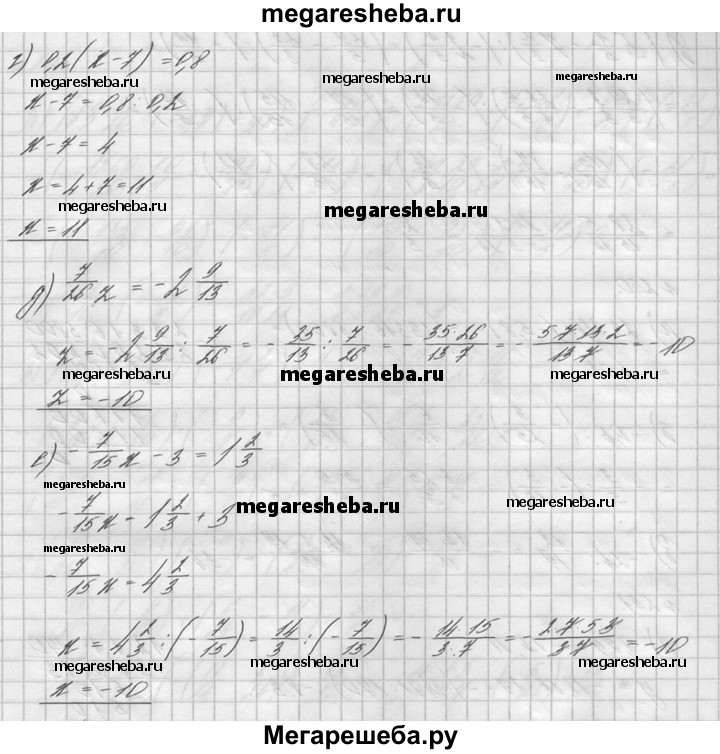 megaresheba.ru
г) 0,2(x-7) = 0,8
megaresheba.ru megaresheba.ru megaresheba.ru
x-7 = 0,8 : 0,2
x-7 = 4
x = 4+7 = 11
megaresheba.ru megaresheba.ru
x = 11
д) 7/26 z = -2 9/13
z = -2 9/13 : 7/26 = -35/13 : 7/26 = -35·26/13·7 = -5·7·13·2/13·7 = -10
megaresheba.ru megaresheba.ru megaresheba.ru
z = -10
е) -7/15 x - 3 = 1 2/3
megaresheba.ru
-7/15 x = 1 2/3 + 3
megaresheba.ru megaresheba.ru
megaresheba.ru
-7/15 x = 4 2/3
x = 4 2/3 : (-7/15) = 14/3 : (-7/15) = -14·15/3·7 = -2·7·5·3/3·7 = -10
megaresheba.ru megaresheba.ru megaresheba.ru
x = -10
Мегарешеба.ру